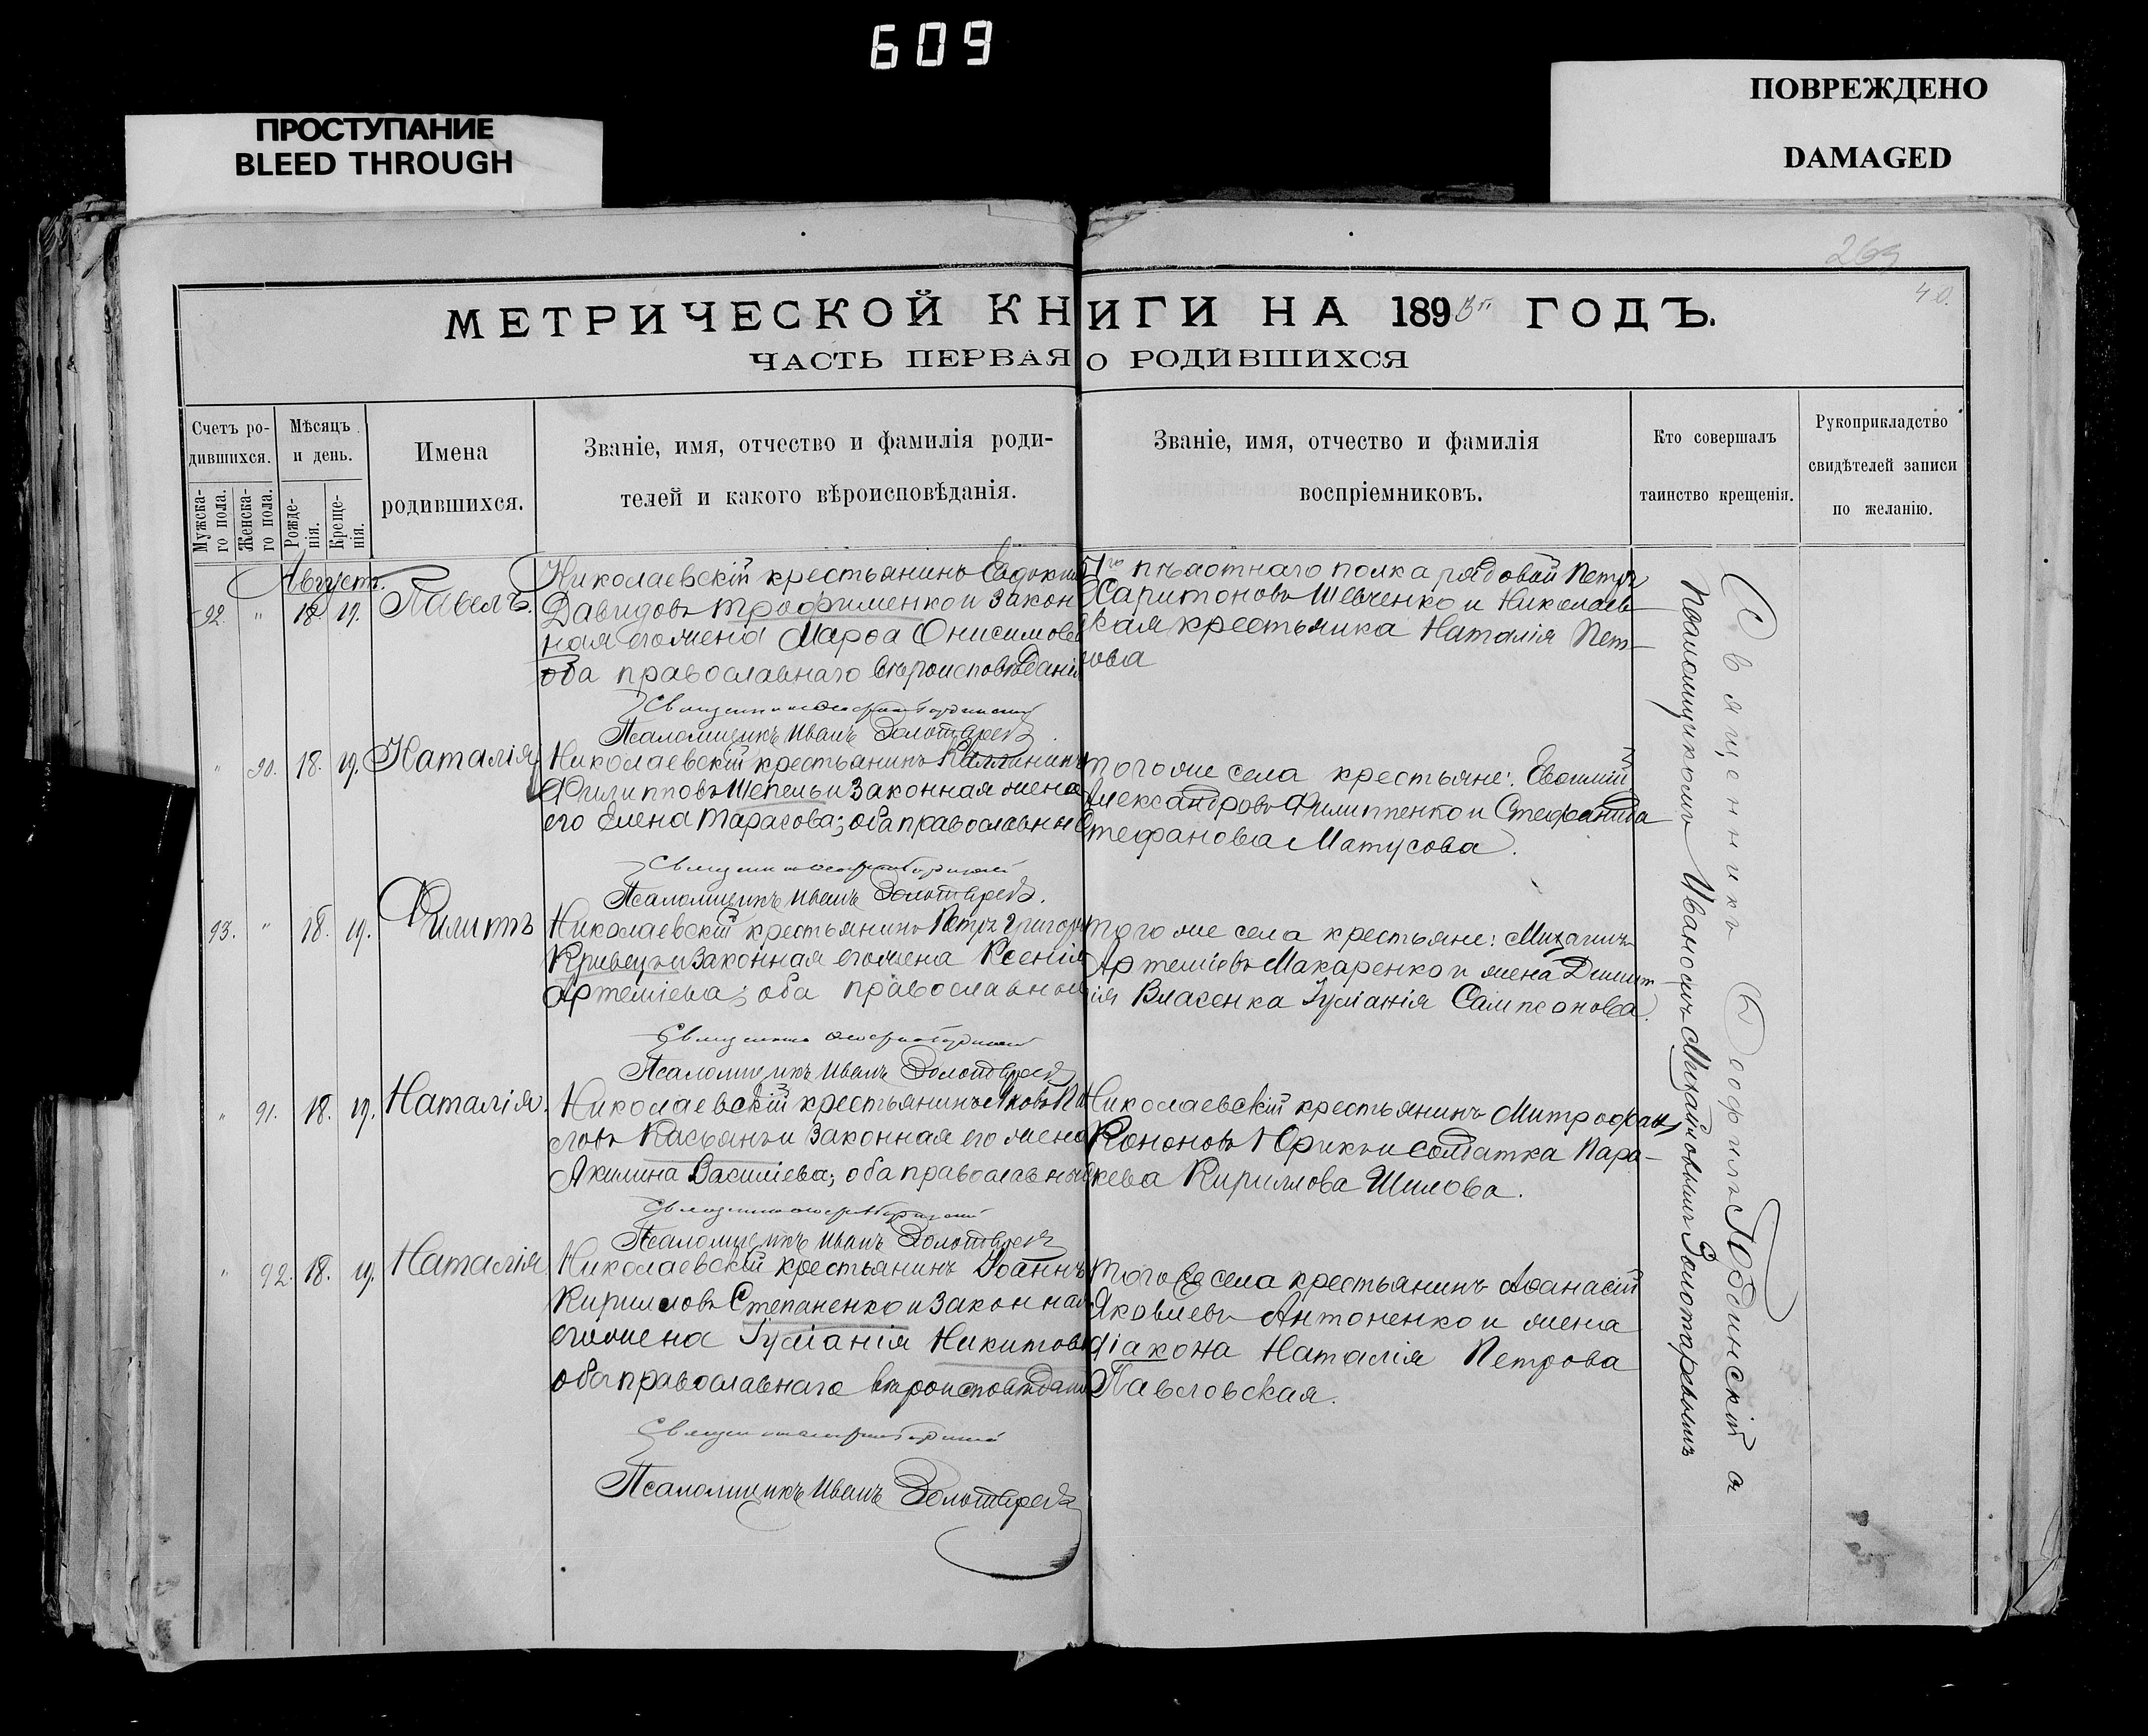 609
ПРОСТУПАНИЕ
BLEED THROUGH
ПОВРЕЖДЕНО
DAMAGED
269
40.
МЕТРИЧЕСКОЙ КНИГИ НА 189 ГОДЪ.
ЧАСТЬ ПЕРВАЯ О РОДИВШИХСЯ
Счетъ ро-
дившихся.
Мужска-
го пола.
Женска-
го пола.
Мѣсяцъ
и день.
Рожде-
нія.
Креще-
нія.
Имена
родившихся.
Званіе, имя, отчество и фамилія роди-
телей и какого вѣроисповѣданія.
Званіе, имя, отчество и фамилія
воспріемниковъ.
Кто совершалъ
таинство крещенія.
Рукоприкладство
свидѣтелей записи
по желанію.
Августъ.
92. " 18. 19. Павелъ.
Николаевскій крестьянинъ Евдоким
Давидовъ Трофименко и закон
ная его жена Марѳа Онисимова
оба православнаго вѣроисповѣданія
пѣхотнаго полка рядовой Петръ
Харитоновъ Шевченко и Николаев-
ская крестьянка Наталія Пет-
рова
Псаломщикъ Иванъ Золотаревъ
" 90. 18. 19. Наталія
Николаевскій крестьянинъ
Филипповъ Шепель и законная жена
его Елена Тарасова; оба православные
того же села крестьяне: Евѳимій
Александровъ Филиппенко и Стефанида
Стефанова Матусова.
Псаломщикъ Иванъ Золотаревъ.
93. " 18. 19. Филиппъ
Николаевскій крестьянинъ Петръ Григорь
Кривецъ и законная его жена Ксенія
Артеміева; оба православные
того же села крестьяне: Михаилъ
Артеміевъ Макаренко и жена Димит
рія Власенка Іуліанія Сампсонова.
Псаломщикъ Иванъ Золотаревъ
" 91. 18. 19. Наталія.
Николаевскій крестьянинъ Яковъ Па
вловъ Касьянъ и законная его жена
Акилина Василіева; оба православные
Николаевскій крестьянинъ Митрофанъ
Кононовъ Юрикъ и солдатка Пара-
скева Кириллова Шилова.
Псаломщикъ Иванъ Золотаревъ
" 92. 18. 19. Наталія
Николаевскій крестьянинъ Іоаннъ
Кирилловъ Степаненко и законная
его жена Іуліанія Никитова
оба православнаго вѣроисповѣданія
Того же села крестьянинъ Аѳанасій
Яковлевъ Антоненко и жена
діакона Наталія Петрова
Павловская.
Псаломщикъ Иванъ Золотаревъ
Священникъ Ѳеофилъ Годзинскій а
Псаломщикомъ Иваномъ Михайловымъ Золотаревымъ